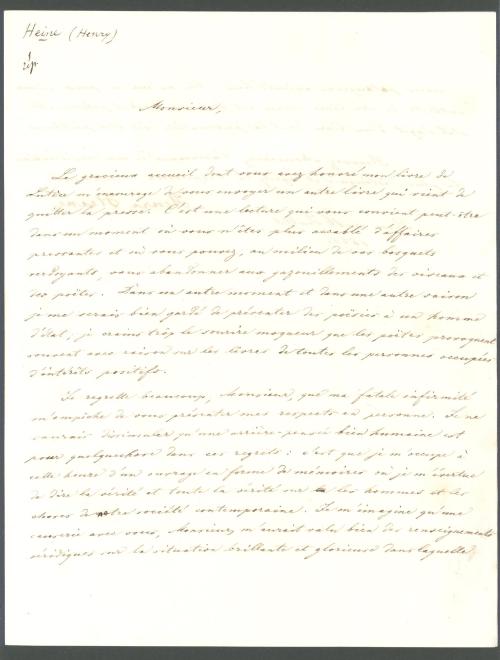 Heine (Henry)
rép
Monsieur,
Le gracieux accueil dont vous avez honoré mon livre de
Lutèce m'encourage de vous envoyer un autre livre qui vient de
quitter la presse. C'est une lecture qui vous convient peut-être
dans un moment où vous n'êtes plus accablé d'affaires
pressantes et où vous pouvez, au milieu de vos bosquets
verdoyants, vous abandonner aux gazouillements des oiseaux et
des poëtes. Dans un autre moment et dans une autre saison
je me serais bien gardé de présenter des poësies à un homme
d'état, je crains trop le sourire moqueur que les poëtes provoquent
souvent avec raison sur les lèvres de toutes les personnes occupées
d'intérêts positifs.
Je regrette beaucoup, Monsieur, que ma fatale infirmité
m'empêche de vous présenter mes respects en personne. Je ne
saurais dissimuler qu'une arrière-pensée bien humaine est
pour quelquechose dans ces regrets: c'est que je m'occupe à
cette heure d'un ouvrage en forme de mémoires où je m'évertue
de dire la vérité et toute la vérité sur les hommes et les
choses de notre société contemporaine. Je m'imagine qu'une
causerie avec vous, Monsieur, m'aurait valu bien des renseignements
véridiques sur la situation brillante et glorieuse dans laquelle